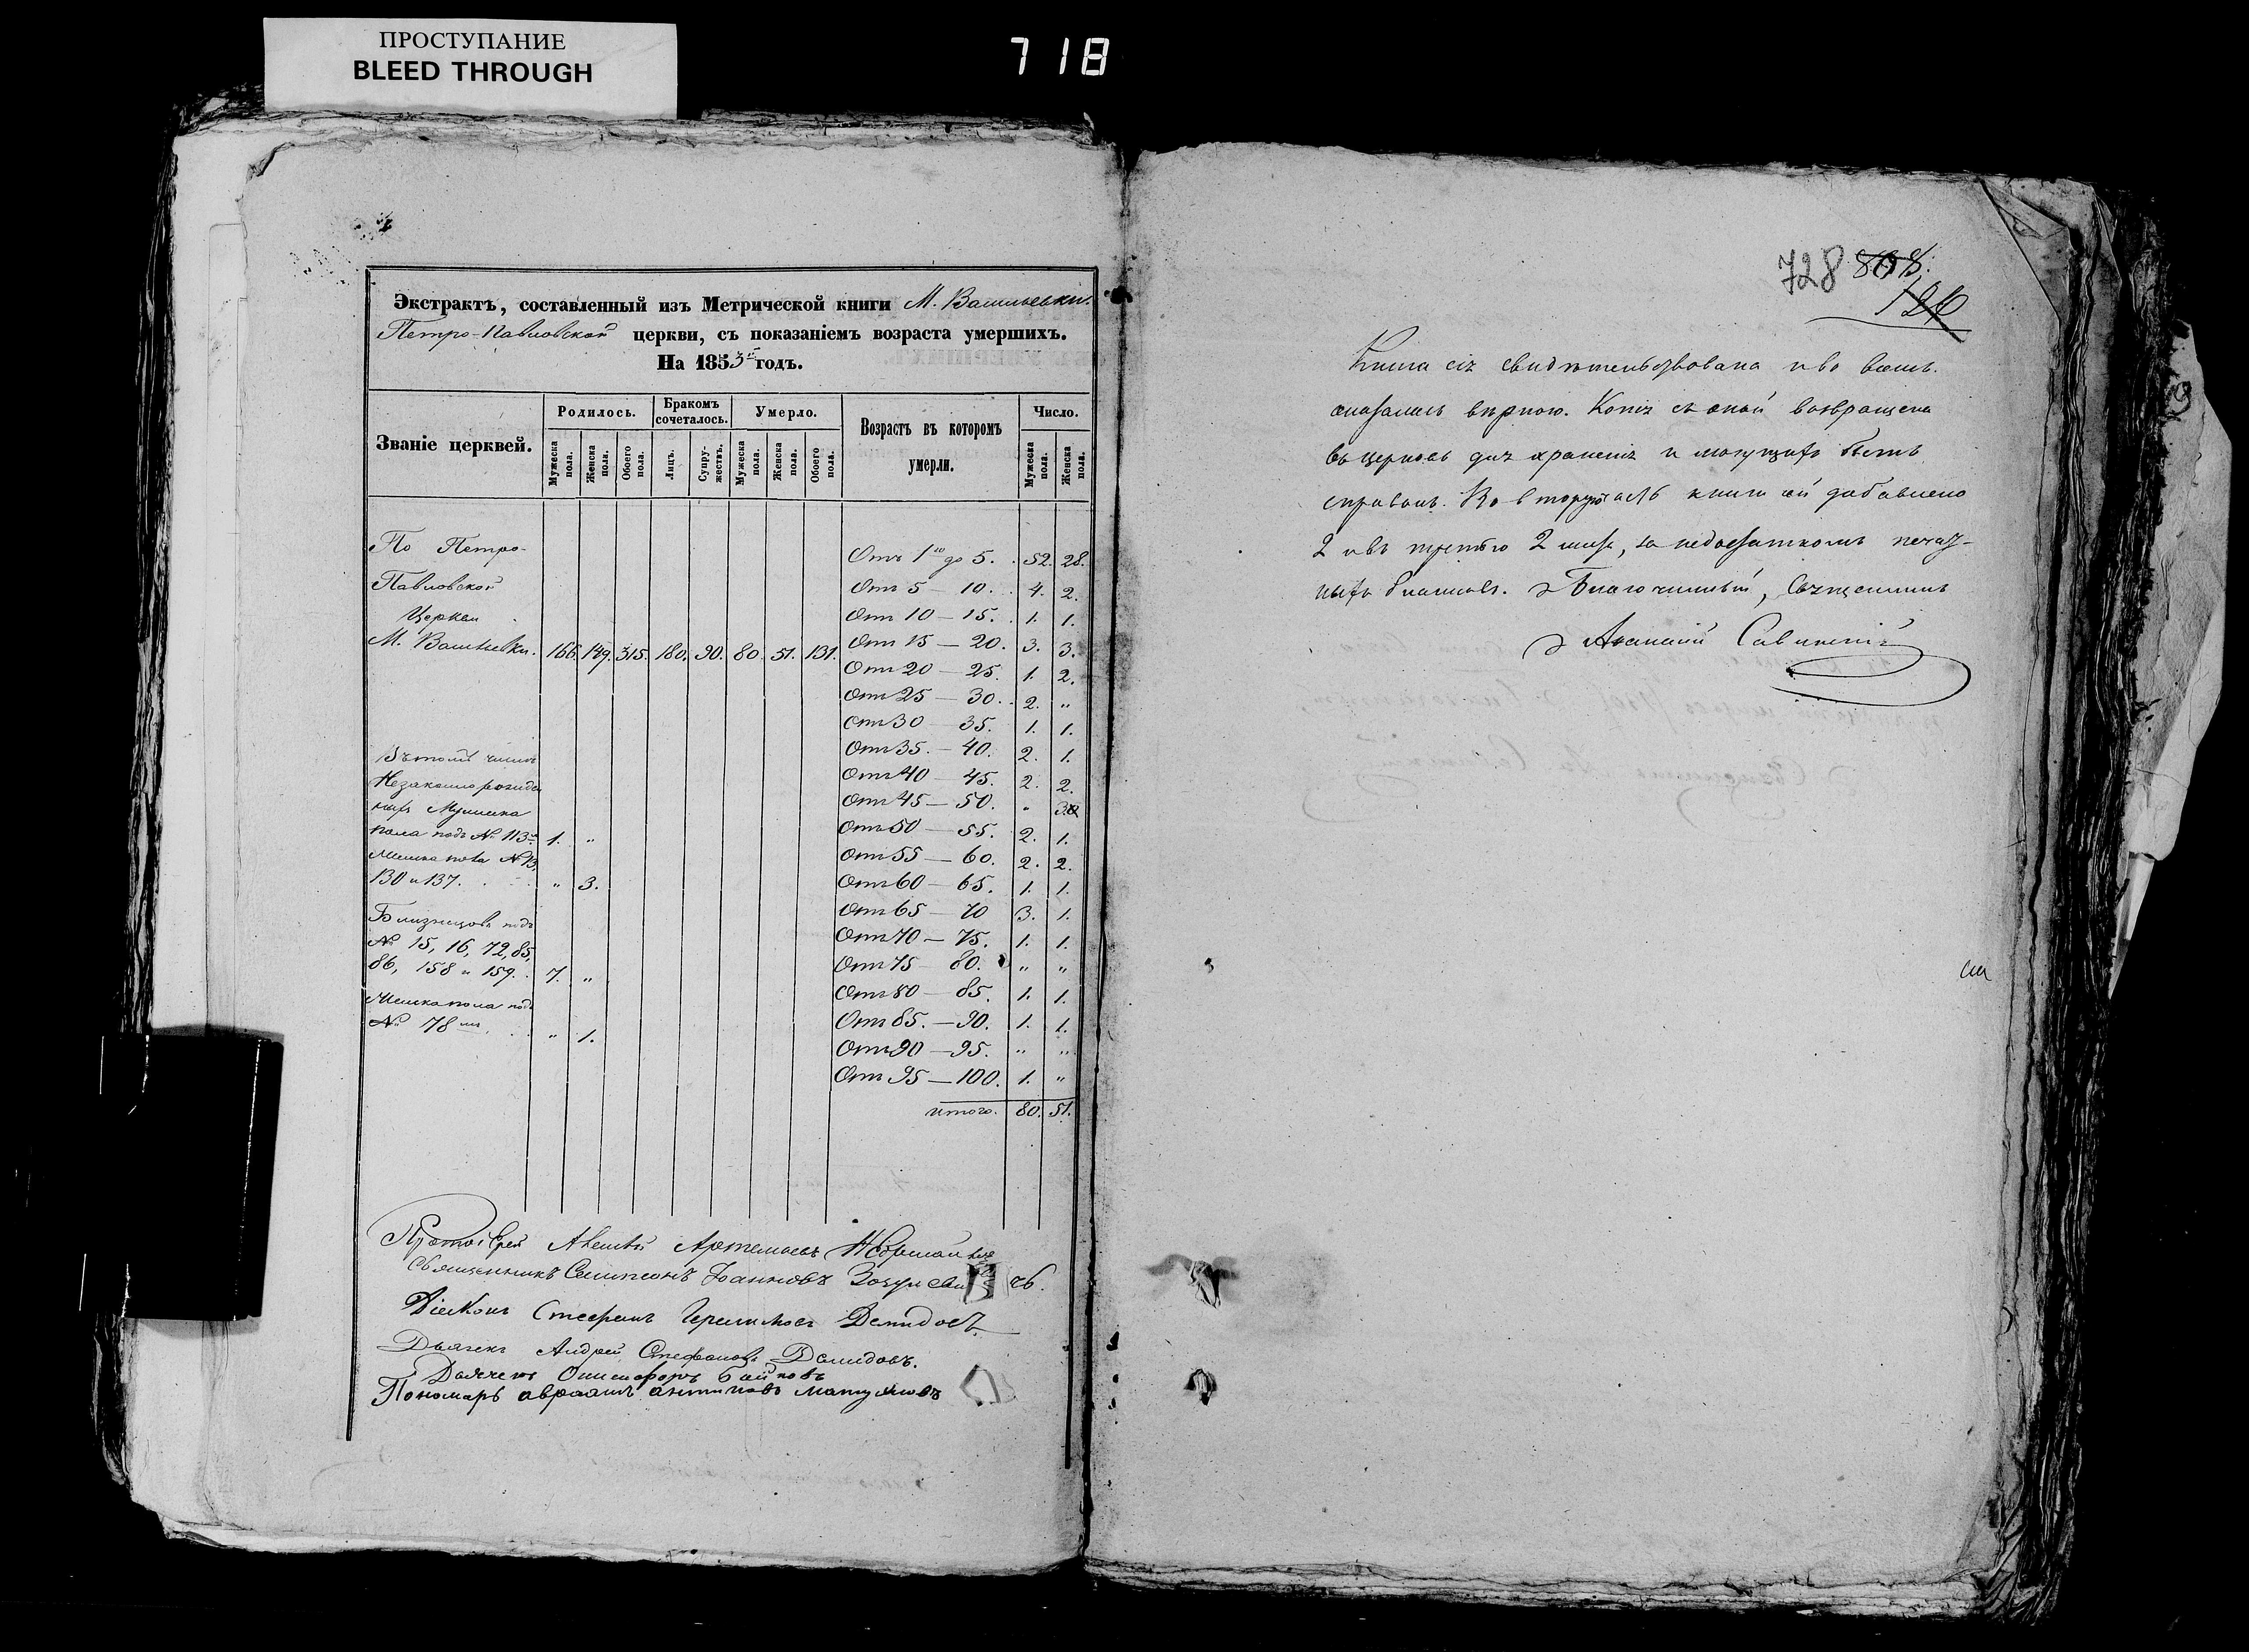 ПРОСТУПАНИЕ
BLEED THROUGH
718
Экстрактъ, составленный изъ Метрической книги М. Васильевки.
Петро-Павловской церкви, съ показаніемъ возраста умершихъ.
На 1853й годъ.
Званіе церквей.
Родилось.
Бракомъ сочеталось.
Умерло.
Возрастъ въ которомъ умерли.
Число.
Мужеска пола.
Женска пола.
Обоего пола.
Лицъ.
Супружествъ.
Мужеска пола.
Женска пола.
Обоего пола.
Мужеска пола.
Женска пола.
По Петро-
Павловской
Церкви
М. Васильевки. 166. 149. 315. 180. 90. 80. 51. 131.
Отъ 1го до 5. 52. 28.
Отъ 5 — 10. 4. 2.
Отъ 10 — 15. 1. 1.
Отъ 15 — 20. 3. 3.
Отъ 20 — 25. 1. 2.
Отъ 25 — 30. 2. "
Отъ 30 — 35. 1. 1.
Отъ 35. — 40. 2. 1.
Отъ 40 — 45. 2. 2.
Отъ 45 — 50. " 3.
Отъ 50 — 55. 2. 1.
Отъ 55 — 60. 2. 2.
Отъ 60 — 65. 1. 1.
Отъ 65 — 70 3. 1.
Отъ 70 — 75. 1. 1.
Отъ 75 — 80. " "
Отъ 80 — 85. 1. 1.
Отъ 85. — 90. 1. 1.
Отъ 90 — 95. " "
Отъ 95 — 100. 1. "
итого. 80. 51.
Въ томъ числѣ
Незаконнорожден
ныхъ Мужеска
пола подъ № 113 1. "
Женска пола № 13,
130 и 137. " 3.
Близнецовъ подъ
№ 15, 16, 72, 85,
86, 158 и 159. 7. "
Женска пола подъ
№ 78 " 1.
Протоіерей Артемьевъ
Священникъ Сампсонъ Іоанновъ
Діаконъ Стефанъ Демидовъ
Дьячекъ Андрей Стефановъ Демидовъ.
Дьячекъ Онисифоръ
Пономарь авраамъ антиповъ
728 808
126
Книга сія свидѣтельствована и во всемъ
оказалась вѣрною. Копія съ оной возвращена
въ церковь для храненія и могущихъ быть
справокъ. Во вторую часть книги сей добавлено
2 и въ третью 2 листа, за недостаткомъ печат-
ныхъ бланковъ. Благочинный, Священникъ
Савинскій